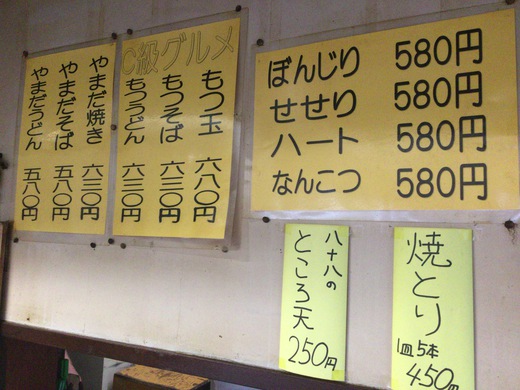 やまだ焼き 六三〇円
やまだそば 五八〇円
やまだうどん 五八〇円
C級グルメ
もつ玉 六八〇円
もつそば 六三〇円
もつうどん 六三〇円
ぼんじり 580円
せせり 580円
ハート 580円
なんこつ 580円
八十八の
ところ天
250円
焼とり
1皿5本
450円